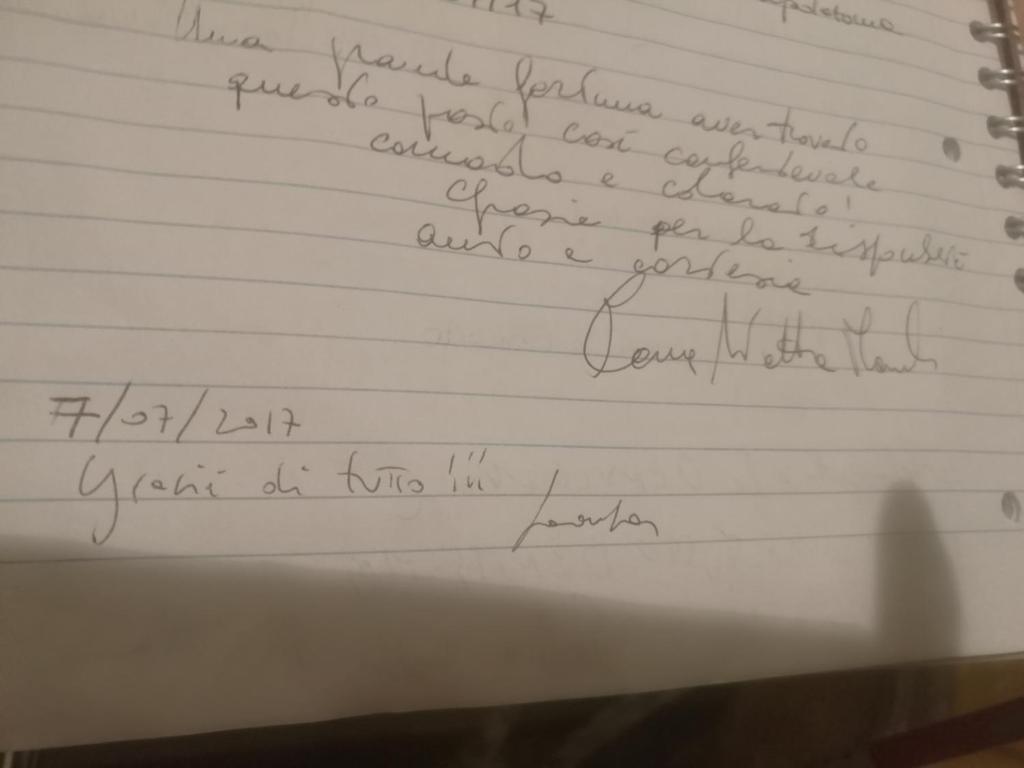 /17
Una grande fortuna aver trovato
questo posto così confortevole
comodo e colorato!
Grazie per la
aiuto e cortesia
7/07/2017
Grazie di tutto!!!